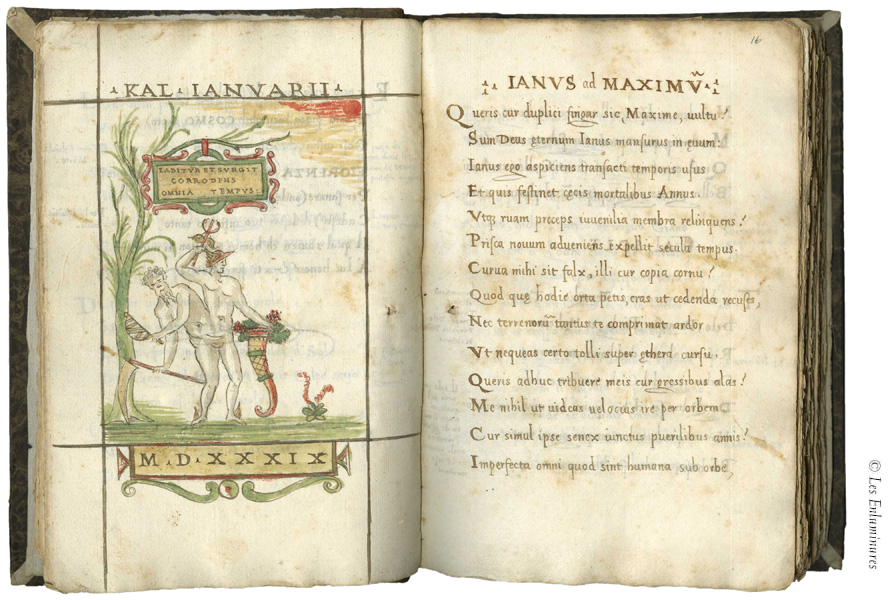 ·KAL·IANVARII·
LABITVR ET SVRGIT
CORRODENS
OMNIA TEMPVS:
M·D·XXXIX
16
IANVS ad MAXIMṼ
Queris cur duplici fingar sic, Maxime, uultu?
Sum Deus eternum Ianus mansurus in euum.
Ianus ego aspiciens transacti temporis usus
Et quis festinet cęcis mortalibus Annus.
Vtq; ruam preceps iuuenilia membra relinquens?
Prisca nouum adueniens expellit secula tempus.
Curua mihi sit falx, illi cur copia cornu?
Quod quę hodie orta petis, cras ut cedenda recuses,
Nec terrenorũ tantus te comprimat ardor
Vt nequeas certo tolli super ęthera cursu.
Queris adhuc tribuere meis cur gressibus alas?
Me nihil ut uideas uelocius ire per orbem
Cur simul ipse senex iunctus puerilibus annis?
Imperfecta omni quod sint humana sub orbe
© Les Enluminures